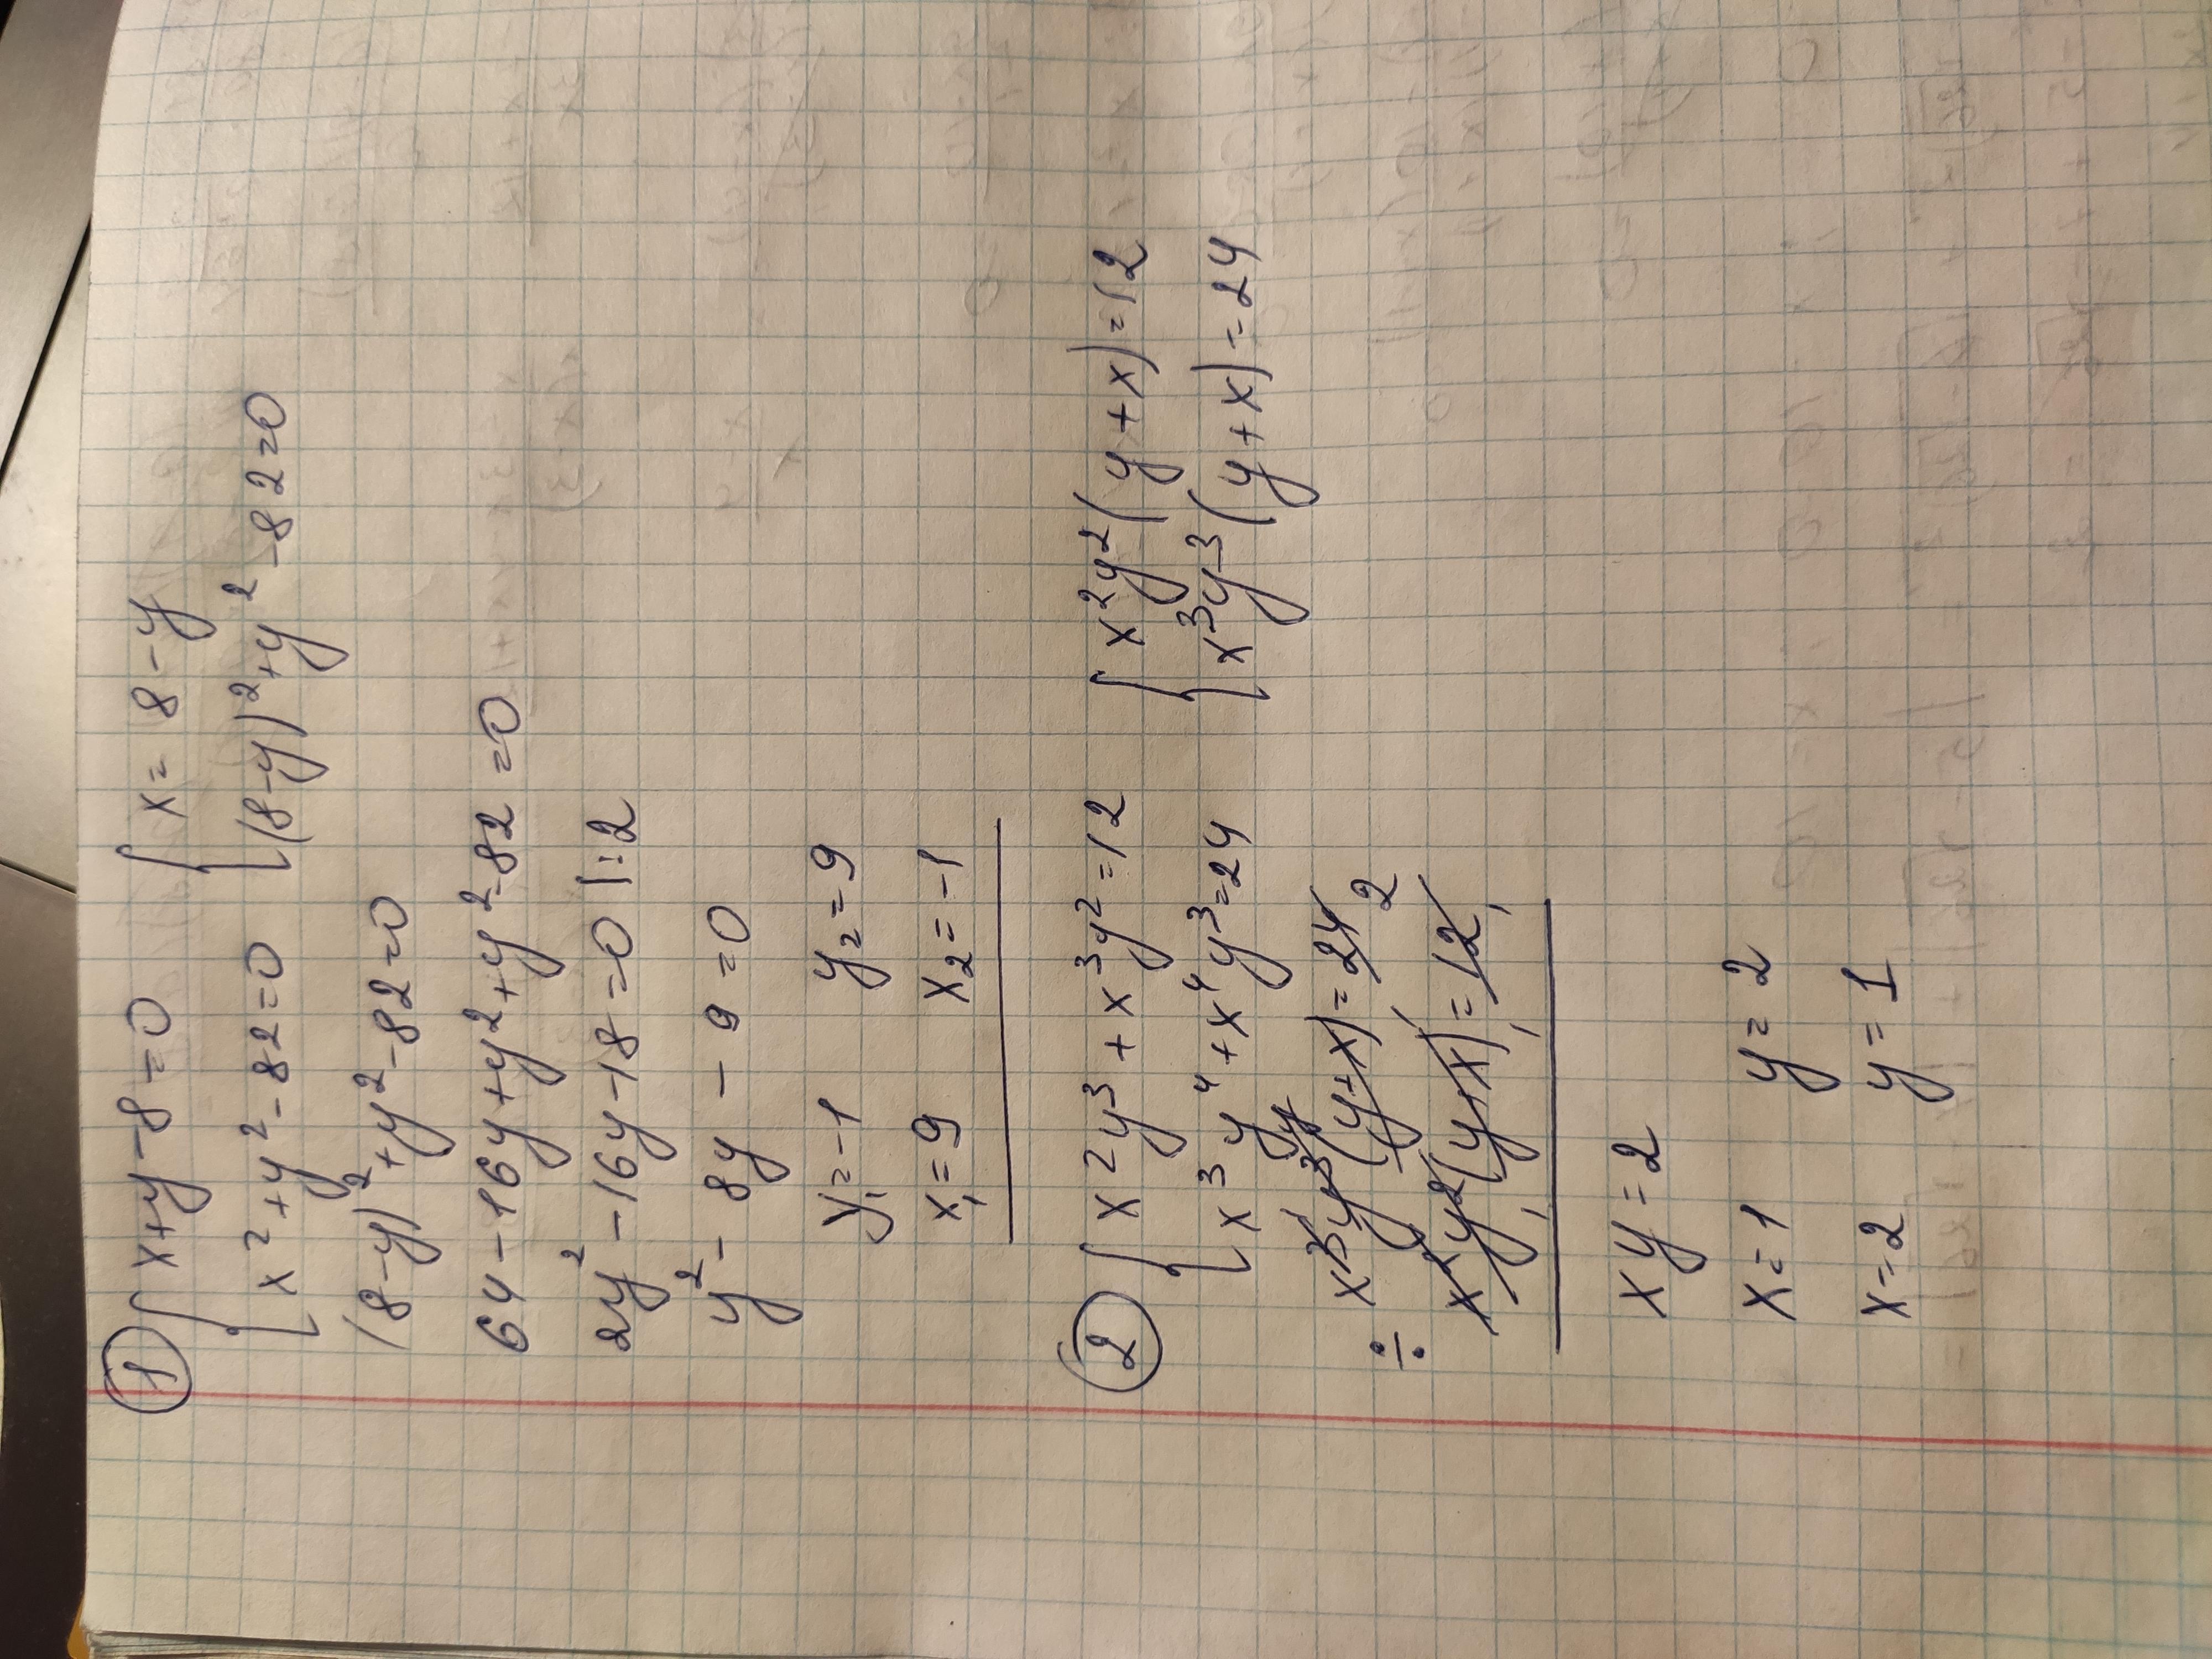 ① { x+y-8=0 { x= 8-y
x²+y²-82=0 (8-y)²+y²-82=0
(8-y)²+y²-82=0
64-16y+y²+y²-82=0
2y²-16y-18=0 |:2
y²-8y-9=0
y₁=-1 y₂=9
x₁=9 x₂=-1
② { x²y³+x³y²=12 { x²y²(y+x)=12
x³y⁴+x⁴y³=24 x³y³(y+x)=24
÷ x³y³(y+x)=24 2
x²y²(y+x)=12
xy=2
x=1 y=2
x=2 y=1